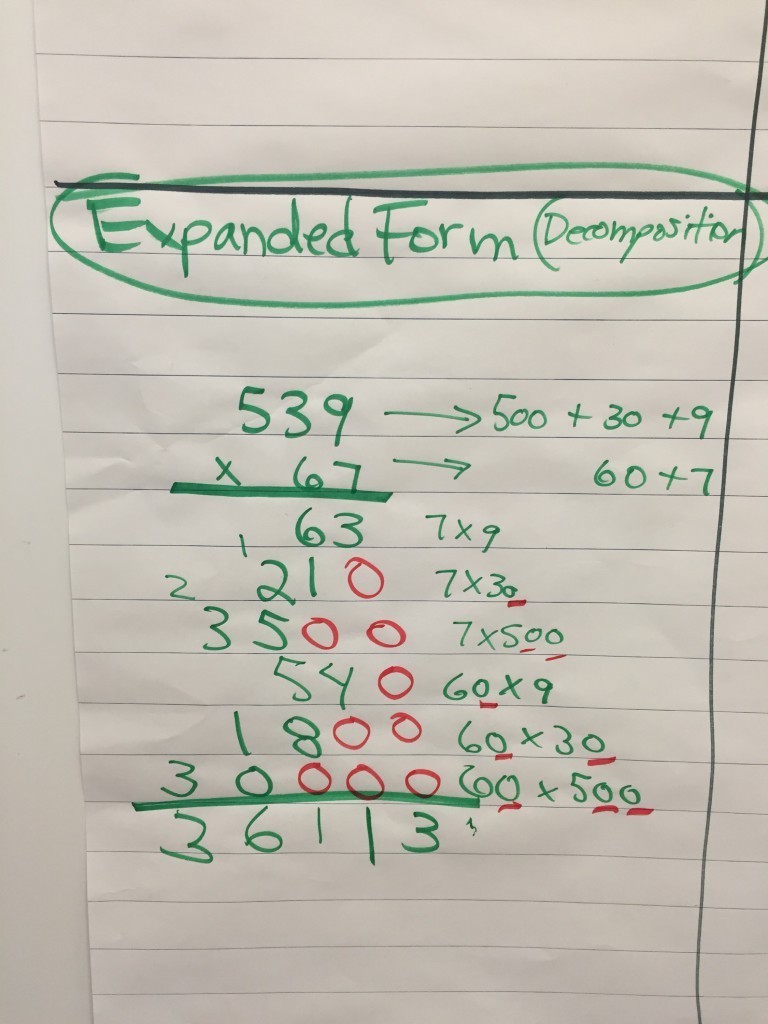 Expanded Form (Decomposition)
539 → 500 + 30 + 9
x 67 → 60 + 7
63 7 x 9
1
2 210 7 x 30
3500 7 x 500
540 60 x 9
1800 60 x 30
30000 60 x 500
36113